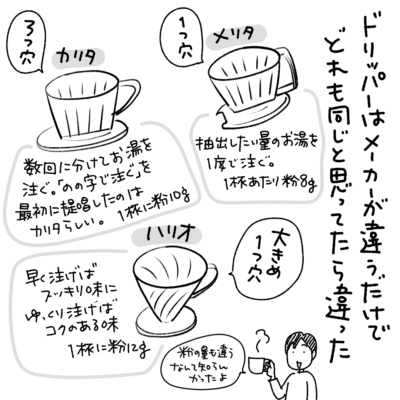 ドリッパーはメーカーが違うだけで
どれも同じと思ってたら違った
メリタ
1つ穴
抽出したい量のお湯を
1度で注ぐ。
1杯あたり粉8g
カリタ
3つ穴
数回に分けてお湯を
注ぐ。「のの字で注ぐ」を
最初に提唱したのは
カリタらしい。1杯に粉10g
ハリオ
大きめ
1つ穴
早く注げば
スッキリ味に
ゆっくり注げば
コクのある味
1杯に粉12g
粉の量も違う
なんて知らん
かったよ